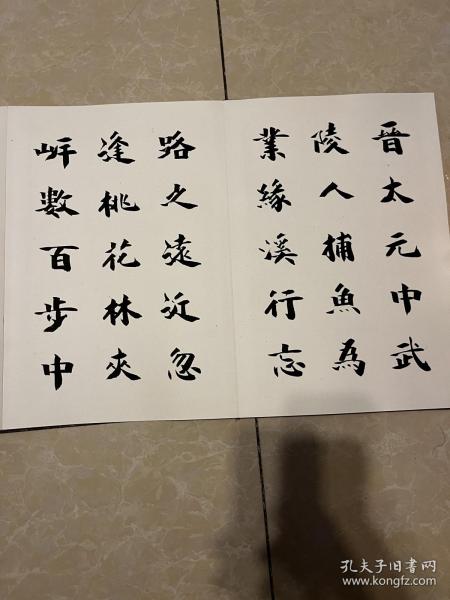 晉太元中武
陵人捕魚為
業緣溪行忘
路之遠近忽
逢桃花林夾
岍數百步中
孔夫子旧书网
www.kongfz.com